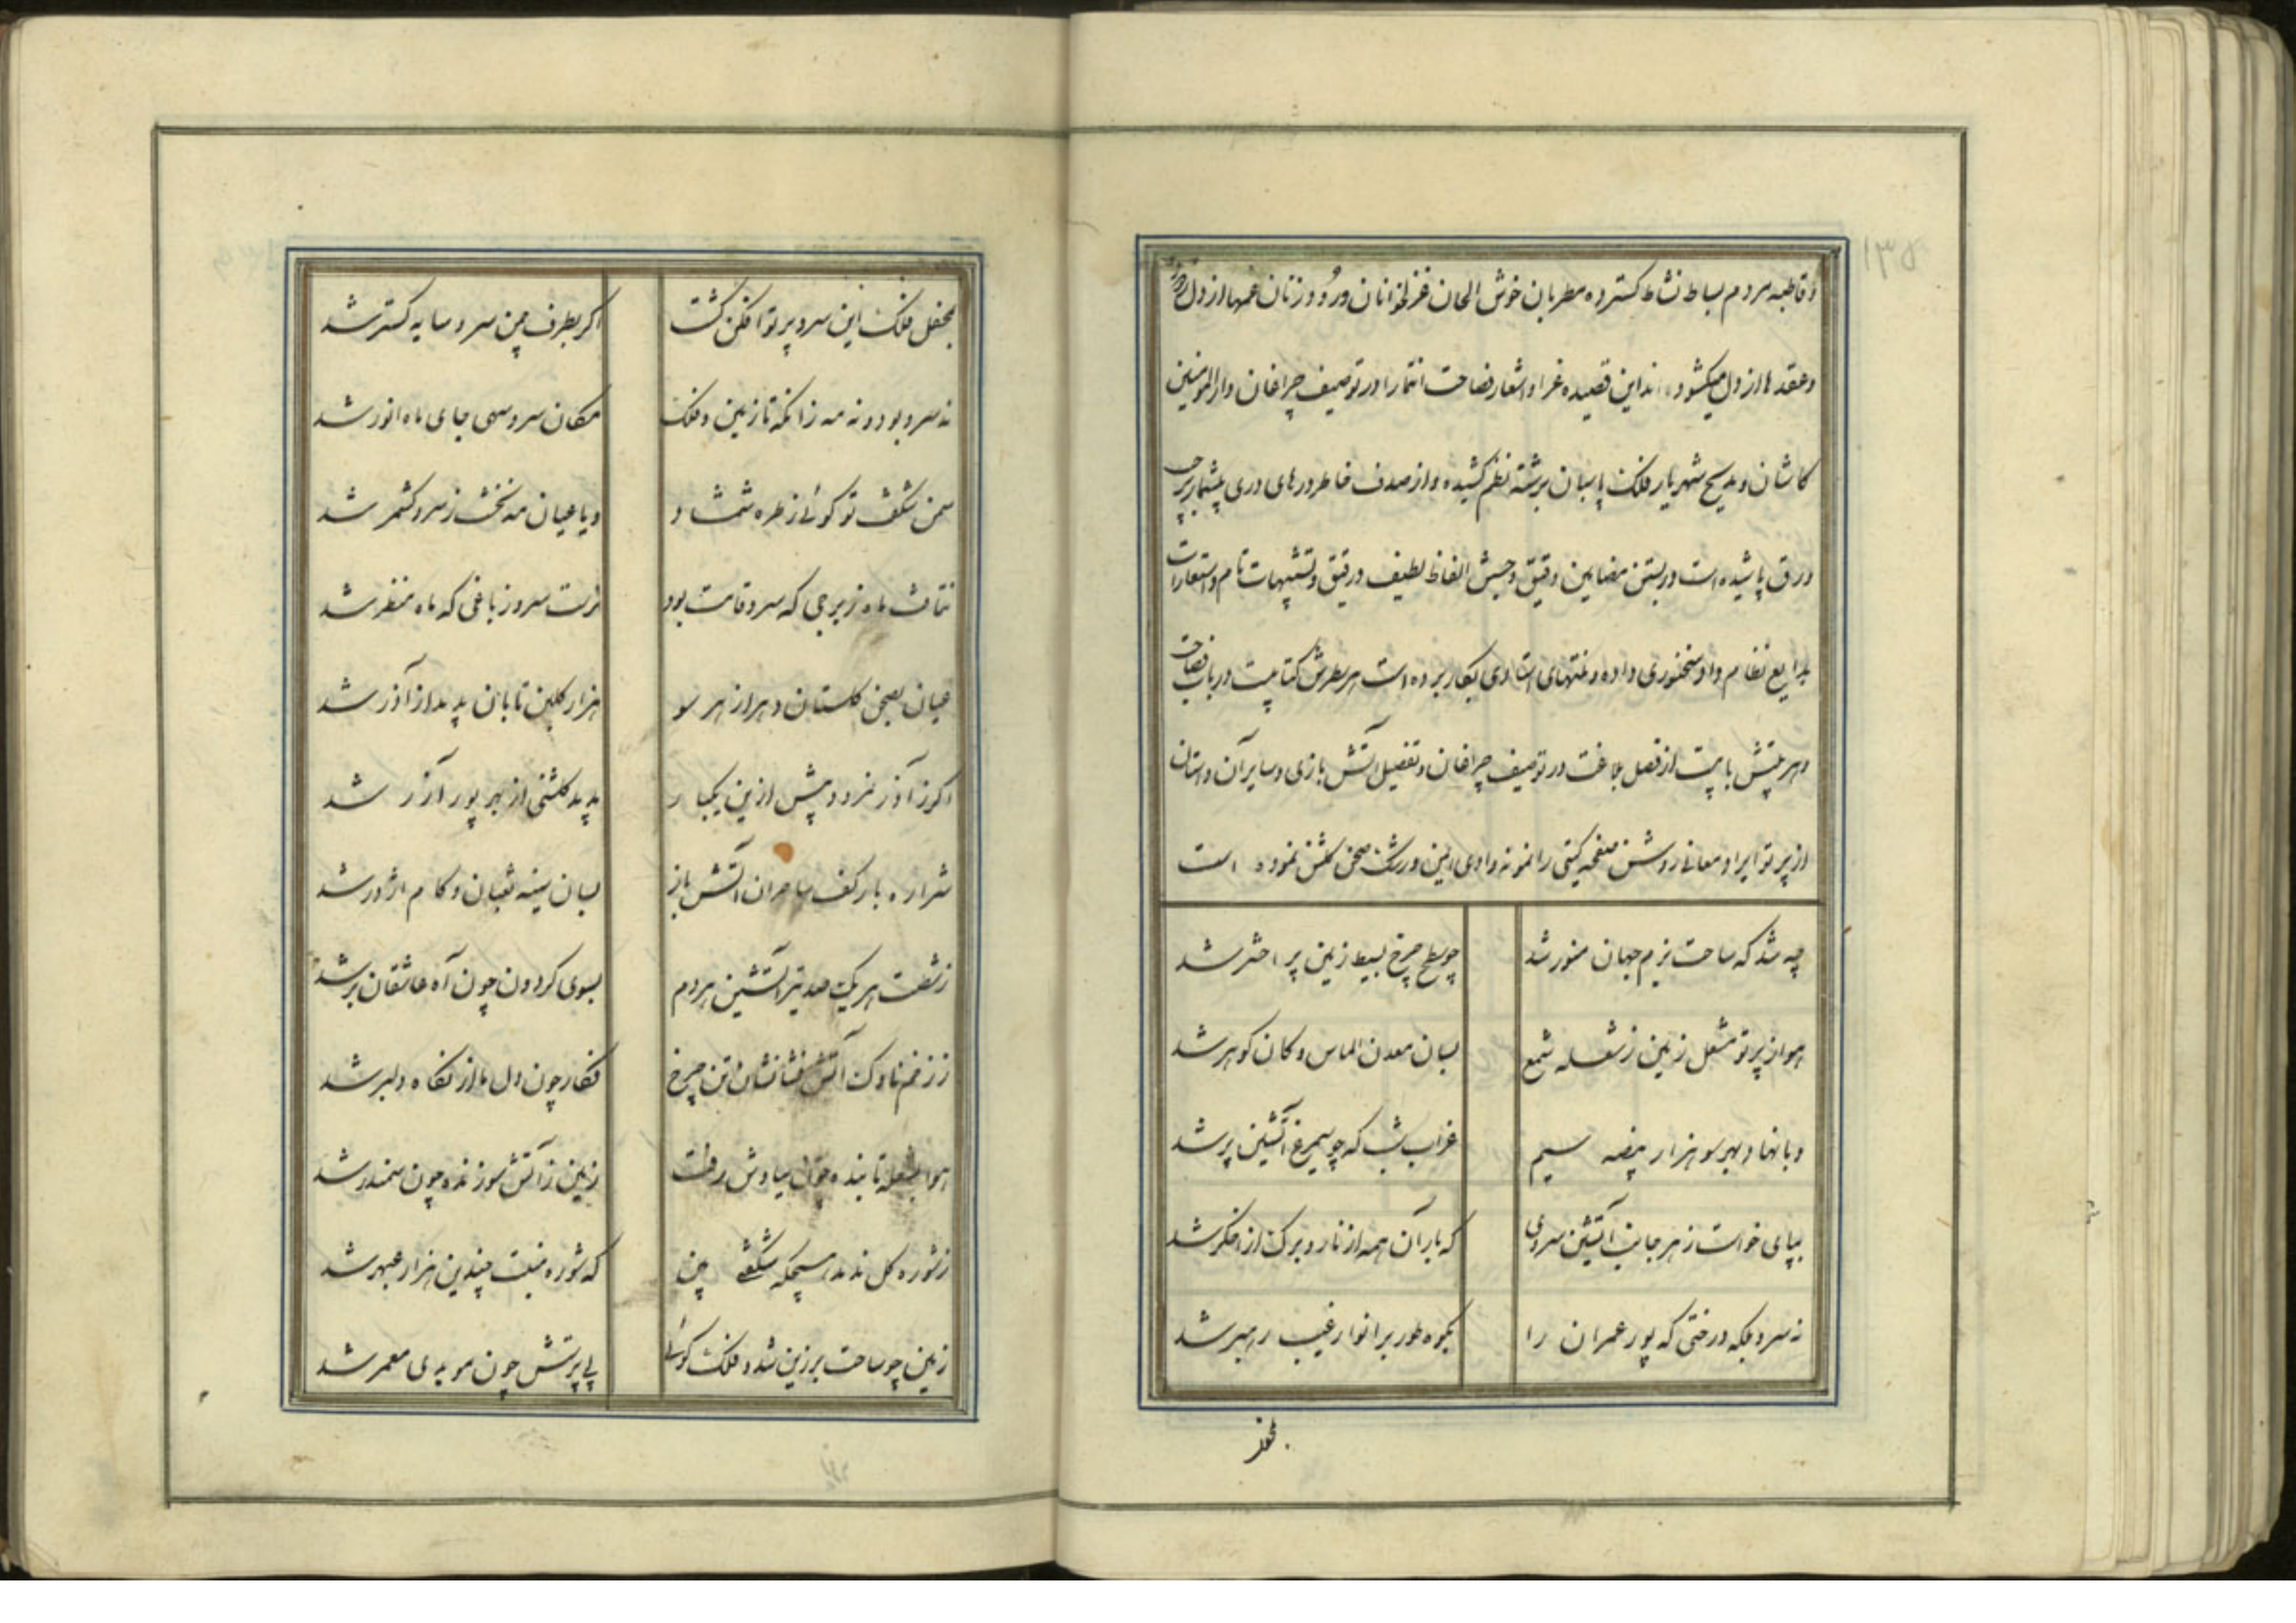 و قاطبه مردم بساط نشاط کسترده مطربان خوش الحان غزلخوانان و رود زنان غمها از دل
و عقدها از دل میکشودند این قصیده غرا و اشعار فصاحت انتما را در توصیف چراغان دارالمومنین
کاشان و مدیح شهریار فلک پاسبان برشته نظم کشیده و از صدف خاطر درهای دری بیشمار بر
ورق پاشیده است در بستن مضامین دقیق و جیش الفاظ لطیف و رقیق و تشبیهات تام و استعارات
بدایع نظام داد سخنوری داده و منتهای استادی بکار برده است هر سطرش کتابیست در باب فصاحت
و هر بیتش بابیست از فصل بلاغت در توصیف چراغان و تفصیل آتش بازی و سایر آن داستان
از پرتو ایراد معانی روشن صفحه کیتی را نمونه وادی ایمن و رشک صحن کلشن نموده است
چه شد که ساحت بزم جهان منور شد چو سطح چرخ بسیط زمین پر اختر شد
هوا ز پرتو مشعل زمین ز شعله شمع بسان معدن الماس و کان کوهر شد
و یا نهاد بهر سو هزار بیضه سیم غراب شب که چو سیمرغ آتشین پر شد
بپای خواست ز هر جانب آتشین سروی که بار آن همه از نار و برک از اخکر شد
نه سرو بلکه درختی که پور عمران را بکوه طور بر انوار غیب رهبر شد
بمحفل
بمحفل فلک این سرو پرتو افکن کشت اکر بطرف چمن سرو سایه کستر شد
نه سرو بود و نه مه زانکه تا زمین و فلک مکان سرو سهی جای ماه انور شد
سمن شکفت تو کوئی ز طره شمشاد و یا عیان مه نخشب ز سرو کشمر شد
نتافت ماه ز برجی که سرو قامت بود نرست سرو ز باغی که ماه منظر شد
عیان بصحن کلستان دهر از هر سو هزار کلبن تابان پدید از آذر شد
اکر ز آذر نمرود پیش ازین یکبار پدید کلشنی از بهر پور آزر شد
شراره بار کف ساحران آتش باز بسان سینه ثعبان و کام اژدر شد
ز شصت هر یک صد تیر آتشین هردم بسوی کردون چون آه عاشقان بر شد
ز زخم ناوک آتش فشانشان تن چرخ فکار چون دل ما از نکاه دلبر شد
هوا بشعله تابنده چون سیاوش رفت زمین ز آتش سوزنده چون سمندر شد
ز شوره کل ندمد هیچکه شکفتی بین که شوره منبت چندین هزار عبهر شد
زمین چو ساحت برزین شد و فلک کوئی پی پرستش چون موبدی معمر شد